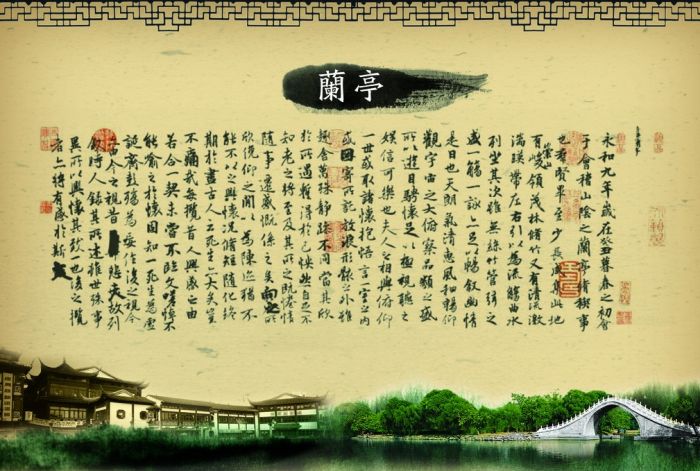 蘭亭
永和九年歲在癸丑暮春之初會
于會稽山陰之蘭亭脩稧事
也羣賢畢至少長咸集此地
有崇山峻領茂林脩竹又有清流激
湍暎帶左右引以為流觴曲水
列坐其次雖無絲竹管弦之
盛一觴一詠亦足以暢敘幽情
是日也天朗氣清惠風和暢仰
觀宇宙之大俯察品類之盛
所以遊目騁懷足以極視聽之
娛信可樂也夫人之相與俯仰
一世或取諸懷抱悟言一室之內
或因寄所託放浪形骸之外雖
趣舍萬殊靜躁不同當其欣
於所遇蹔得於己怏然自足不
知老之將至及其所之既惓情
隨事遷感慨係之矣向之所
欣俛仰之閒以為陳迹猶不
能不以之興懷況脩短隨化終
期於盡古人云死生亦大矣豈
不痛哉每攬昔人興感之由
若合一契未嘗不臨文嗟悼不
能喻之於懷固知一死生為虛
誕齊彭殤為妄作後之視今
亦由今之視昔悲夫故列
敘時人錄其所述雖世殊事
異所以興懷其致一也後之攬
者亦將有感於斯文